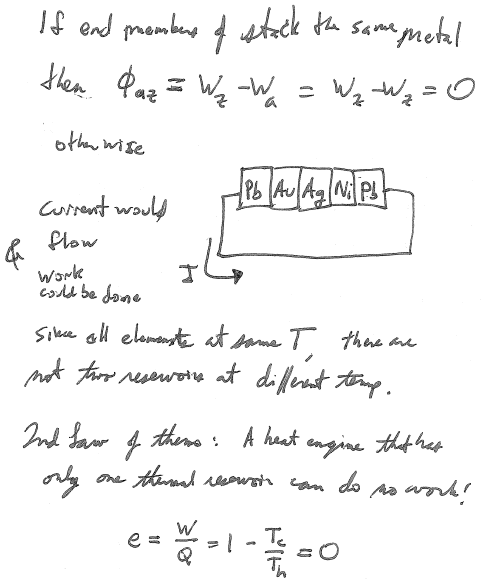 If end members of stack the same metal
then Φaz = Wz - Wa = Wz - Wz = 0
otherwise
Pb Au Ag Ni Pb
Current would
& flow
work
could be done
I
Since all elements at same T, there are
not two reservoirs at different temp.
2nd Law of thermo: A heat engine that has
only one thermal reservoir can do no work!
e = W/Q = 1 - Tc/Th = 0